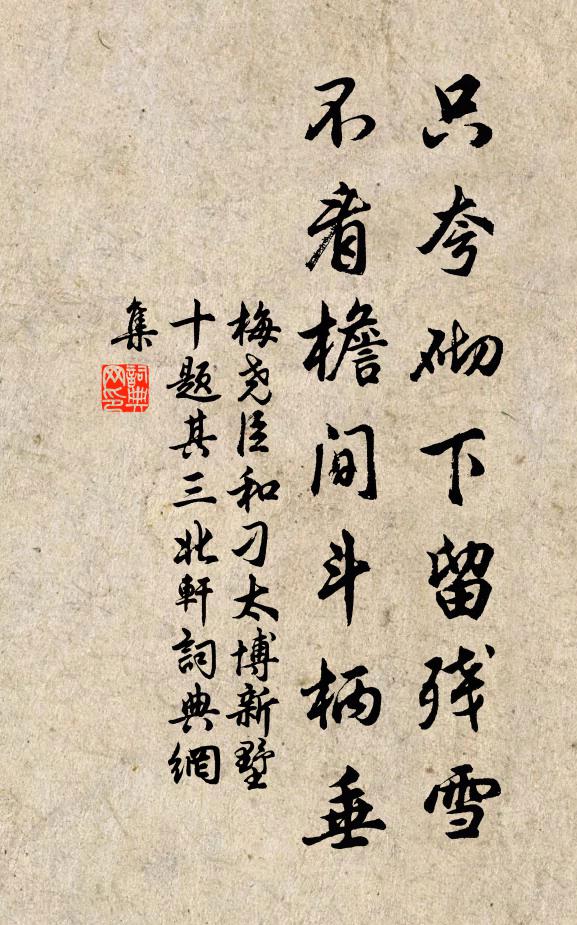 只夸砌下留残雪
不看檐间斗柄垂
梅尧臣和刁太博新墅
十题其三北軒詞典網
集
詞典
网印